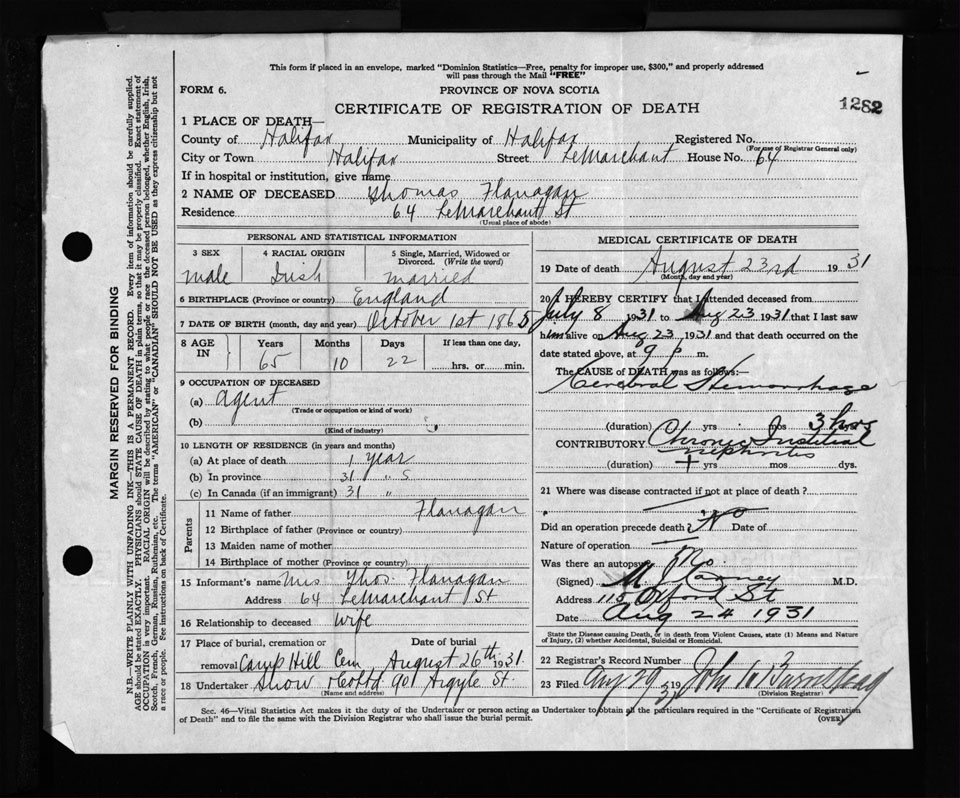 This form if placed in an envelope, marked "Dominion Statistics—Free, penalty for improper use, $300," and properly addressed
will pass through the Mail "FREE"
FORM 6.
PROVINCE OF NOVA SCOTIA
1282
CERTIFICATE OF REGISTRATION OF DEATH
1 PLACE OF DEATH—
County of Halifax Municipality of Halifax Registered No.
(For use of Registrar General only)
City or Town Halifax Street LeMarchant House No. 64
If in hospital or institution, give name
2 NAME OF DECEASED Thomas Flanagan
Residence 64 LeMarchant St
(Usual place of abode)
PERSONAL AND STATISTICAL INFORMATION
3 SEX 4 RACIAL ORIGIN 5 Single, Married, Widowed or
Divorced. (Write the word)
male Irish married
6 BIRTHPLACE (Province or country) England
7 DATE OF BIRTH (month, day and year) October 1st 1865
8 AGE IN Years Months Days If less than one day,
65 10 22 hrs. or min.
9 OCCUPATION OF DECEASED
(a) agent
(Trade or occupation or kind of work)
(b)
(Kind of industry)
10 LENGTH OF RESIDENCE (in years and months)
(a) At place of death 1 year
(b) In province 31 " s
(c) In Canada (if an immigrant) 31 "
Parents
11 Name of father Flanagan
12 Birthplace of father (Province or country)
13 Maiden name of mother
14 Birthplace of mother (Province or country)
15 Informant's name Mrs Thos. Flanagan
Address 64 LeMarchant St
16 Relationship to deceased wife
17 Place of burial, cremation or Date of burial
removal Camp Hill Cem August 26th 1931
18 Undertaker Snow & Co Ltd 90 Argyle St.
(Name and address)
MEDICAL CERTIFICATE OF DEATH
19 Date of death August 23rd 1931
(Month, day and year)
20 I HEREBY CERTIFY that I attended deceased from
July 8 1931 to Aug 23 1931 that I last saw
him alive on Aug 23 1931 and that death occurred on the
date stated above, at 9 p m.
The CAUSE OF DEATH was as follows:—
Cerebral Hemorrhage
(duration) yrs mos 3 hrs
CONTRIBUTORY Chronic
nephritis
(duration) + yrs mos dys.
21 Where was disease contracted if not at place of death?
Did an operation precede death? No Date of
Nature of operation
Was there an autopsy? No.
(Signed) M. J. Carney M.D.
Address 115 Oxford St
Date Aug 24 1931
State the Disease causing Death, or in death from Violent Causes, state (1) Means and Nature
of Injury, (2) whether Accidental, Suicidal or Homicidal.
22 Registrar's Record Number
23 Filed Aug 29 1931 John
(Division Registrar)
Sec. 46—Vital Statistics Act makes it the duty of the Undertaker or person acting as Undertaker to obtain all the particulars required in the "Certificate of Registration
of Death" and to file the same with the Division Registrar who shall issue the burial permit.
(OVER)
MARGIN RESERVED FOR BINDING
N.B.—WRITE PLAINLY WITH UNFADING INK—THIS IS A PERMANENT RECORD. Every item of information should be carefully supplied.
AGE should be stated EXACTLY. PHYSICIANS should STATE CAUSE OF DEATH in plain terms, so that it may be properly classified. Exact statement of
OCCUPATION is very important. RACIAL ORIGIN will be described by stating to what people or race the deceased person belonged, whether English, Irish,
Scotch, French, German, Russian, Ruthenian, etc. The terms "AMERICAN" or "CANADIAN" SHOULD NOT BE USED as they express citizenship but not
a race or people. See instructions on back of Certificate.